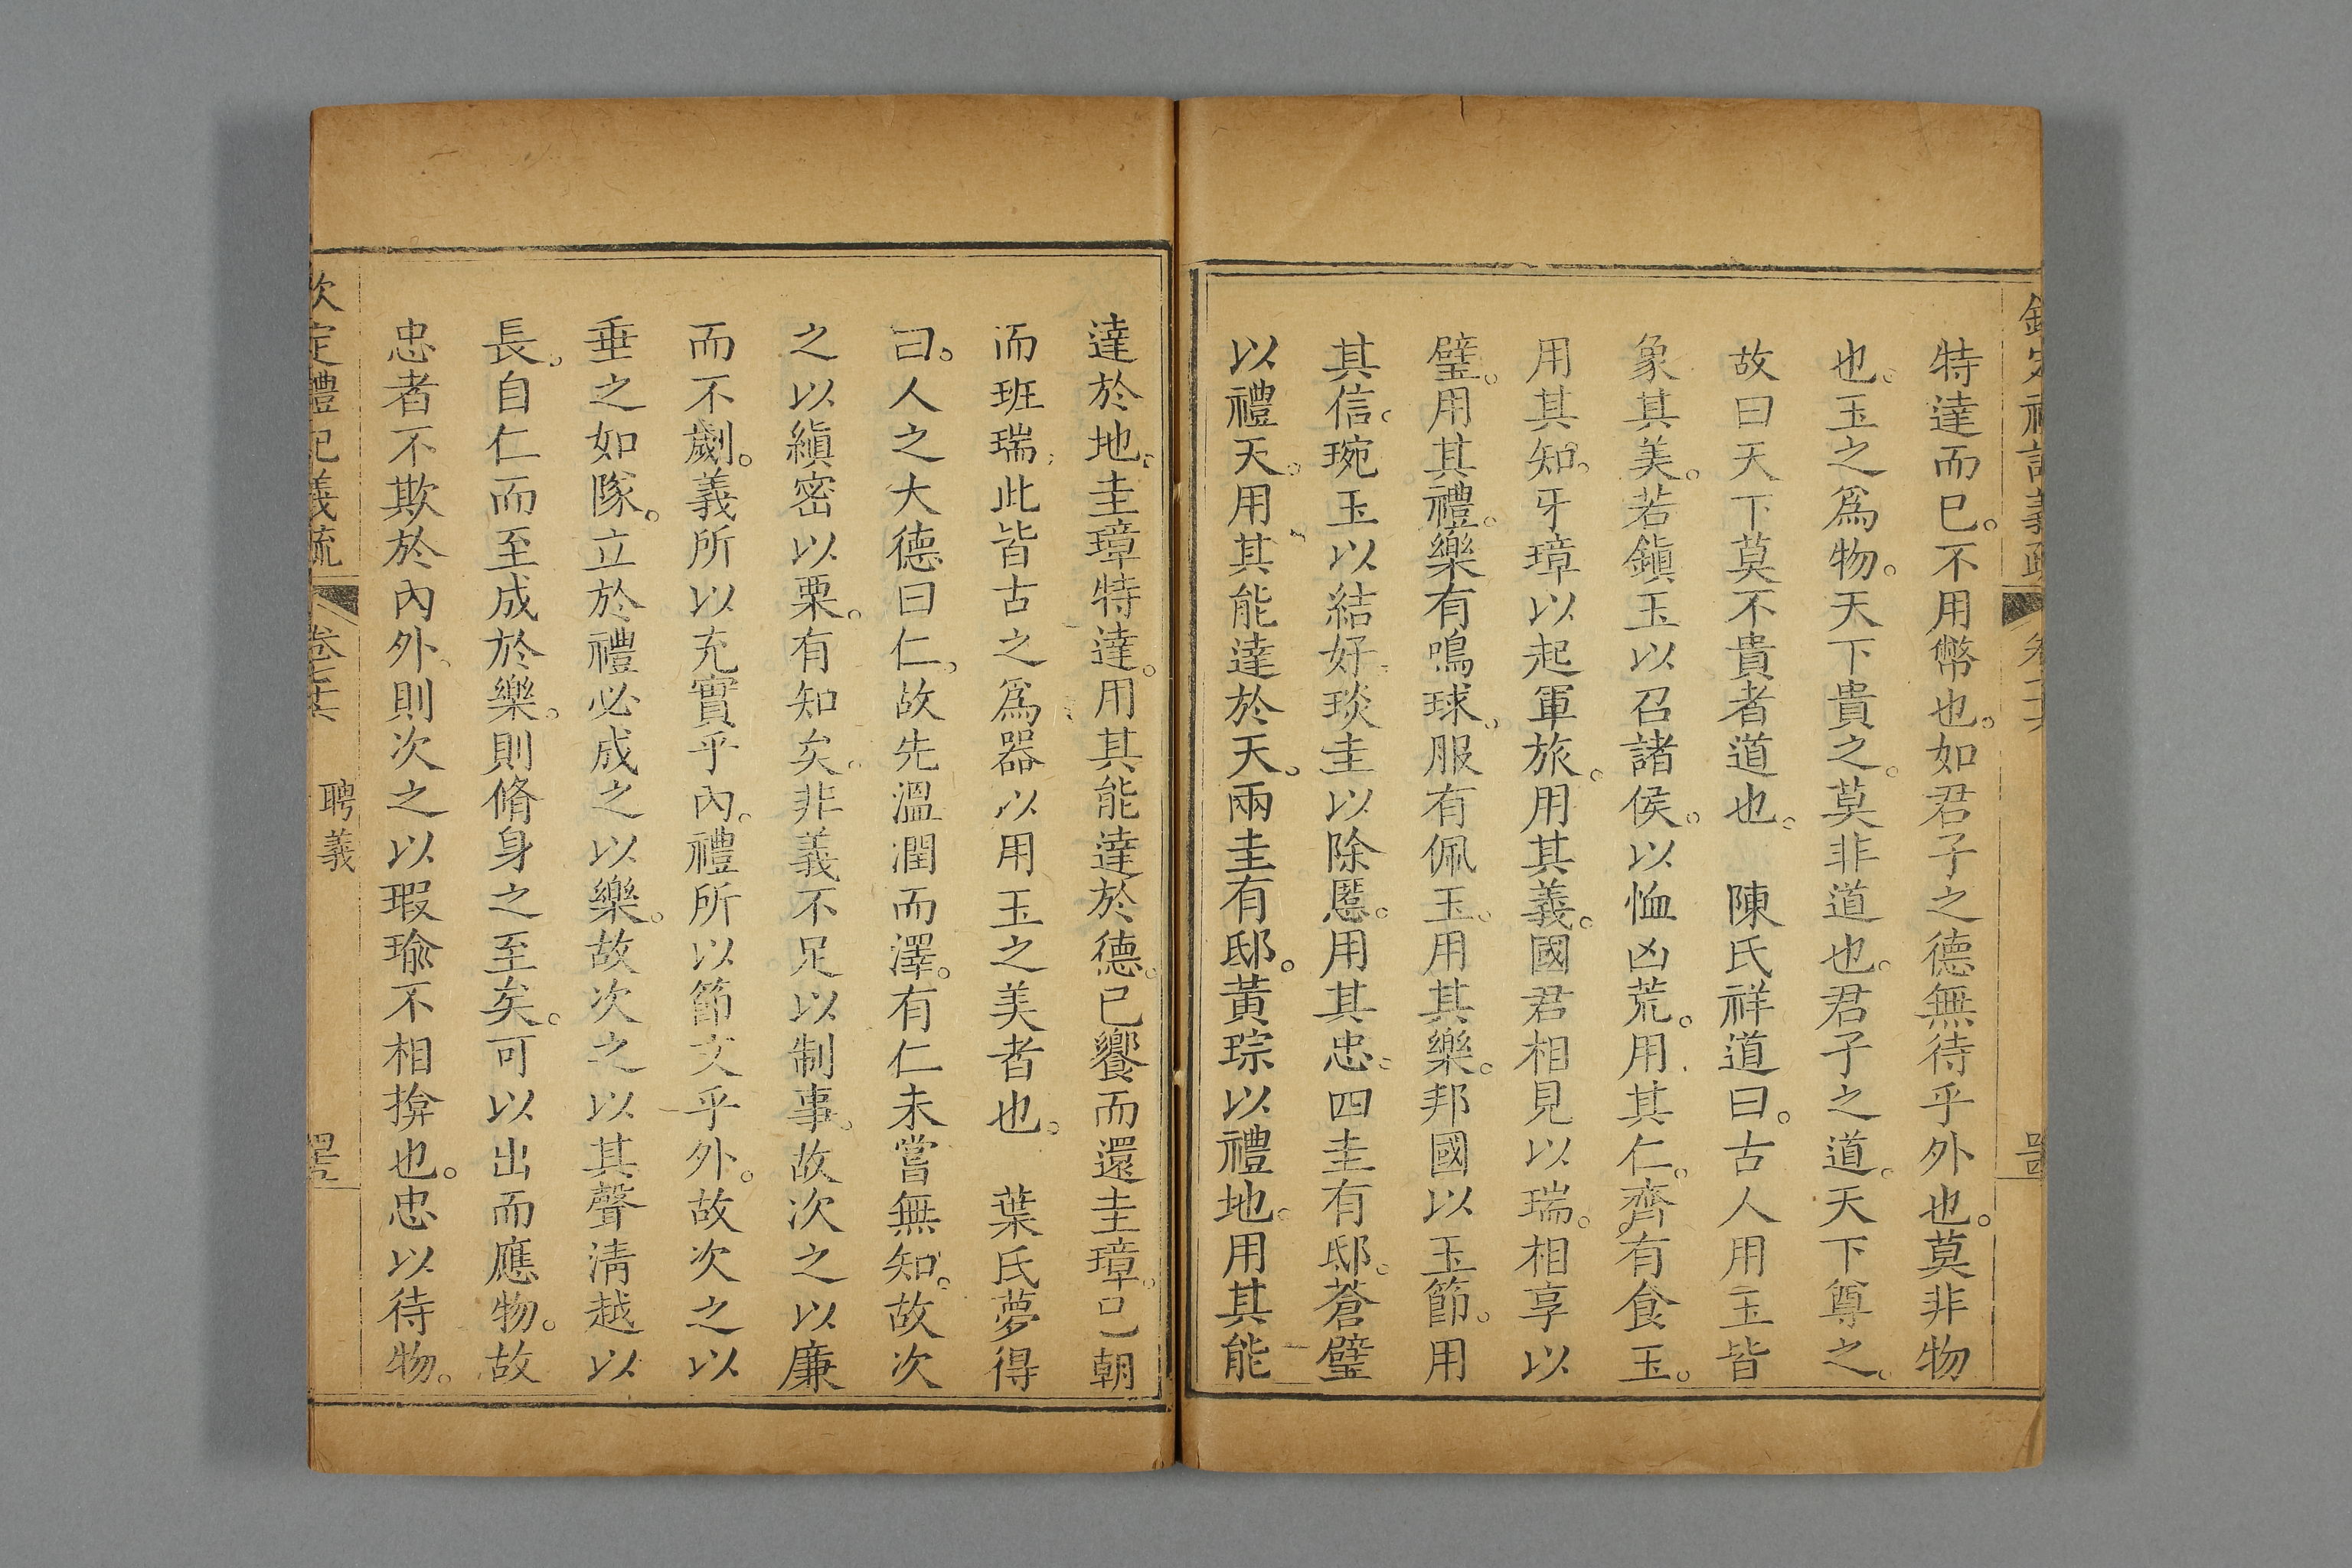 特達而已。不用幣也。如君子之德無待乎外也。莫非物
也。玉之爲物。天下貴之。莫非道也。君子之道。天下尊之。
故曰天下莫不貴者道也。　陳氏祥道曰。古人用玉皆
象其美。若鎭玉以召諸侯。以恤凶荒。用其仁。齊有食玉。
用其知。牙璋以起軍旅。用其義。國君相見以瑞。相享以
璧。用其禮。樂有鳴球。服有佩玉。用其樂。邦國以玉節。用
其信。琬玉以結好。琰圭以除慝。用其忠。四圭有邸。蒼璧
以禮天。用其能達於天。兩圭有邸。黃琮以禮地。用其能
達於地。圭璋特達。用其能達於德。已饗而還圭璋。已朝
而班瑞。此皆古之爲器以用玉之美者也。　葉氏夢得
曰。人之大德曰仁。故先溫潤而澤。有仁未嘗無知。故次
之以縝密以栗。有知矣。非義不足以制事。故次之以廉
而不劌。義所以充實乎內。禮所以節文乎外。故次之以
垂之如隊。立於禮必成之以樂。故次之以其聲淸越以
長。自仁而至成於樂。則脩身之至矣。可以出而應物。故
忠者不欺於內外。則次之以瑕瑜不相揜也。忠以待物。
欽定禮記義疏　卷七十六　聘義